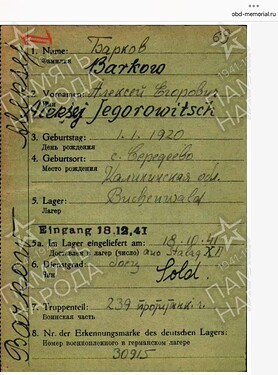 obd-memorial.ru
Barkow Aleksej
1. Name: Барков
Фамилия
Barkow
2. Vorname: Алексей Егорович
Имя
Aleksej Jegorowitsch
3. Geburtstag: 1.1.1920
День рождения
4. Geburtsort: с. Середеево
Место рождения
Калининская обл.
5. Lager: Buchenwald
Лагерь
Eingang 18.12.41
5a. Im Lager eingeliefert am: 18.10.41
Доставлен в лагерь (число) aus Stalag XII
6. Dienstgrad: боец
Чин
Sold.
7. Truppenteil: 239
Воинская часть
8. Nr. der Erkennungsmarke des deutschen Lagers:
Номер военнопленного в германском лагере
30915